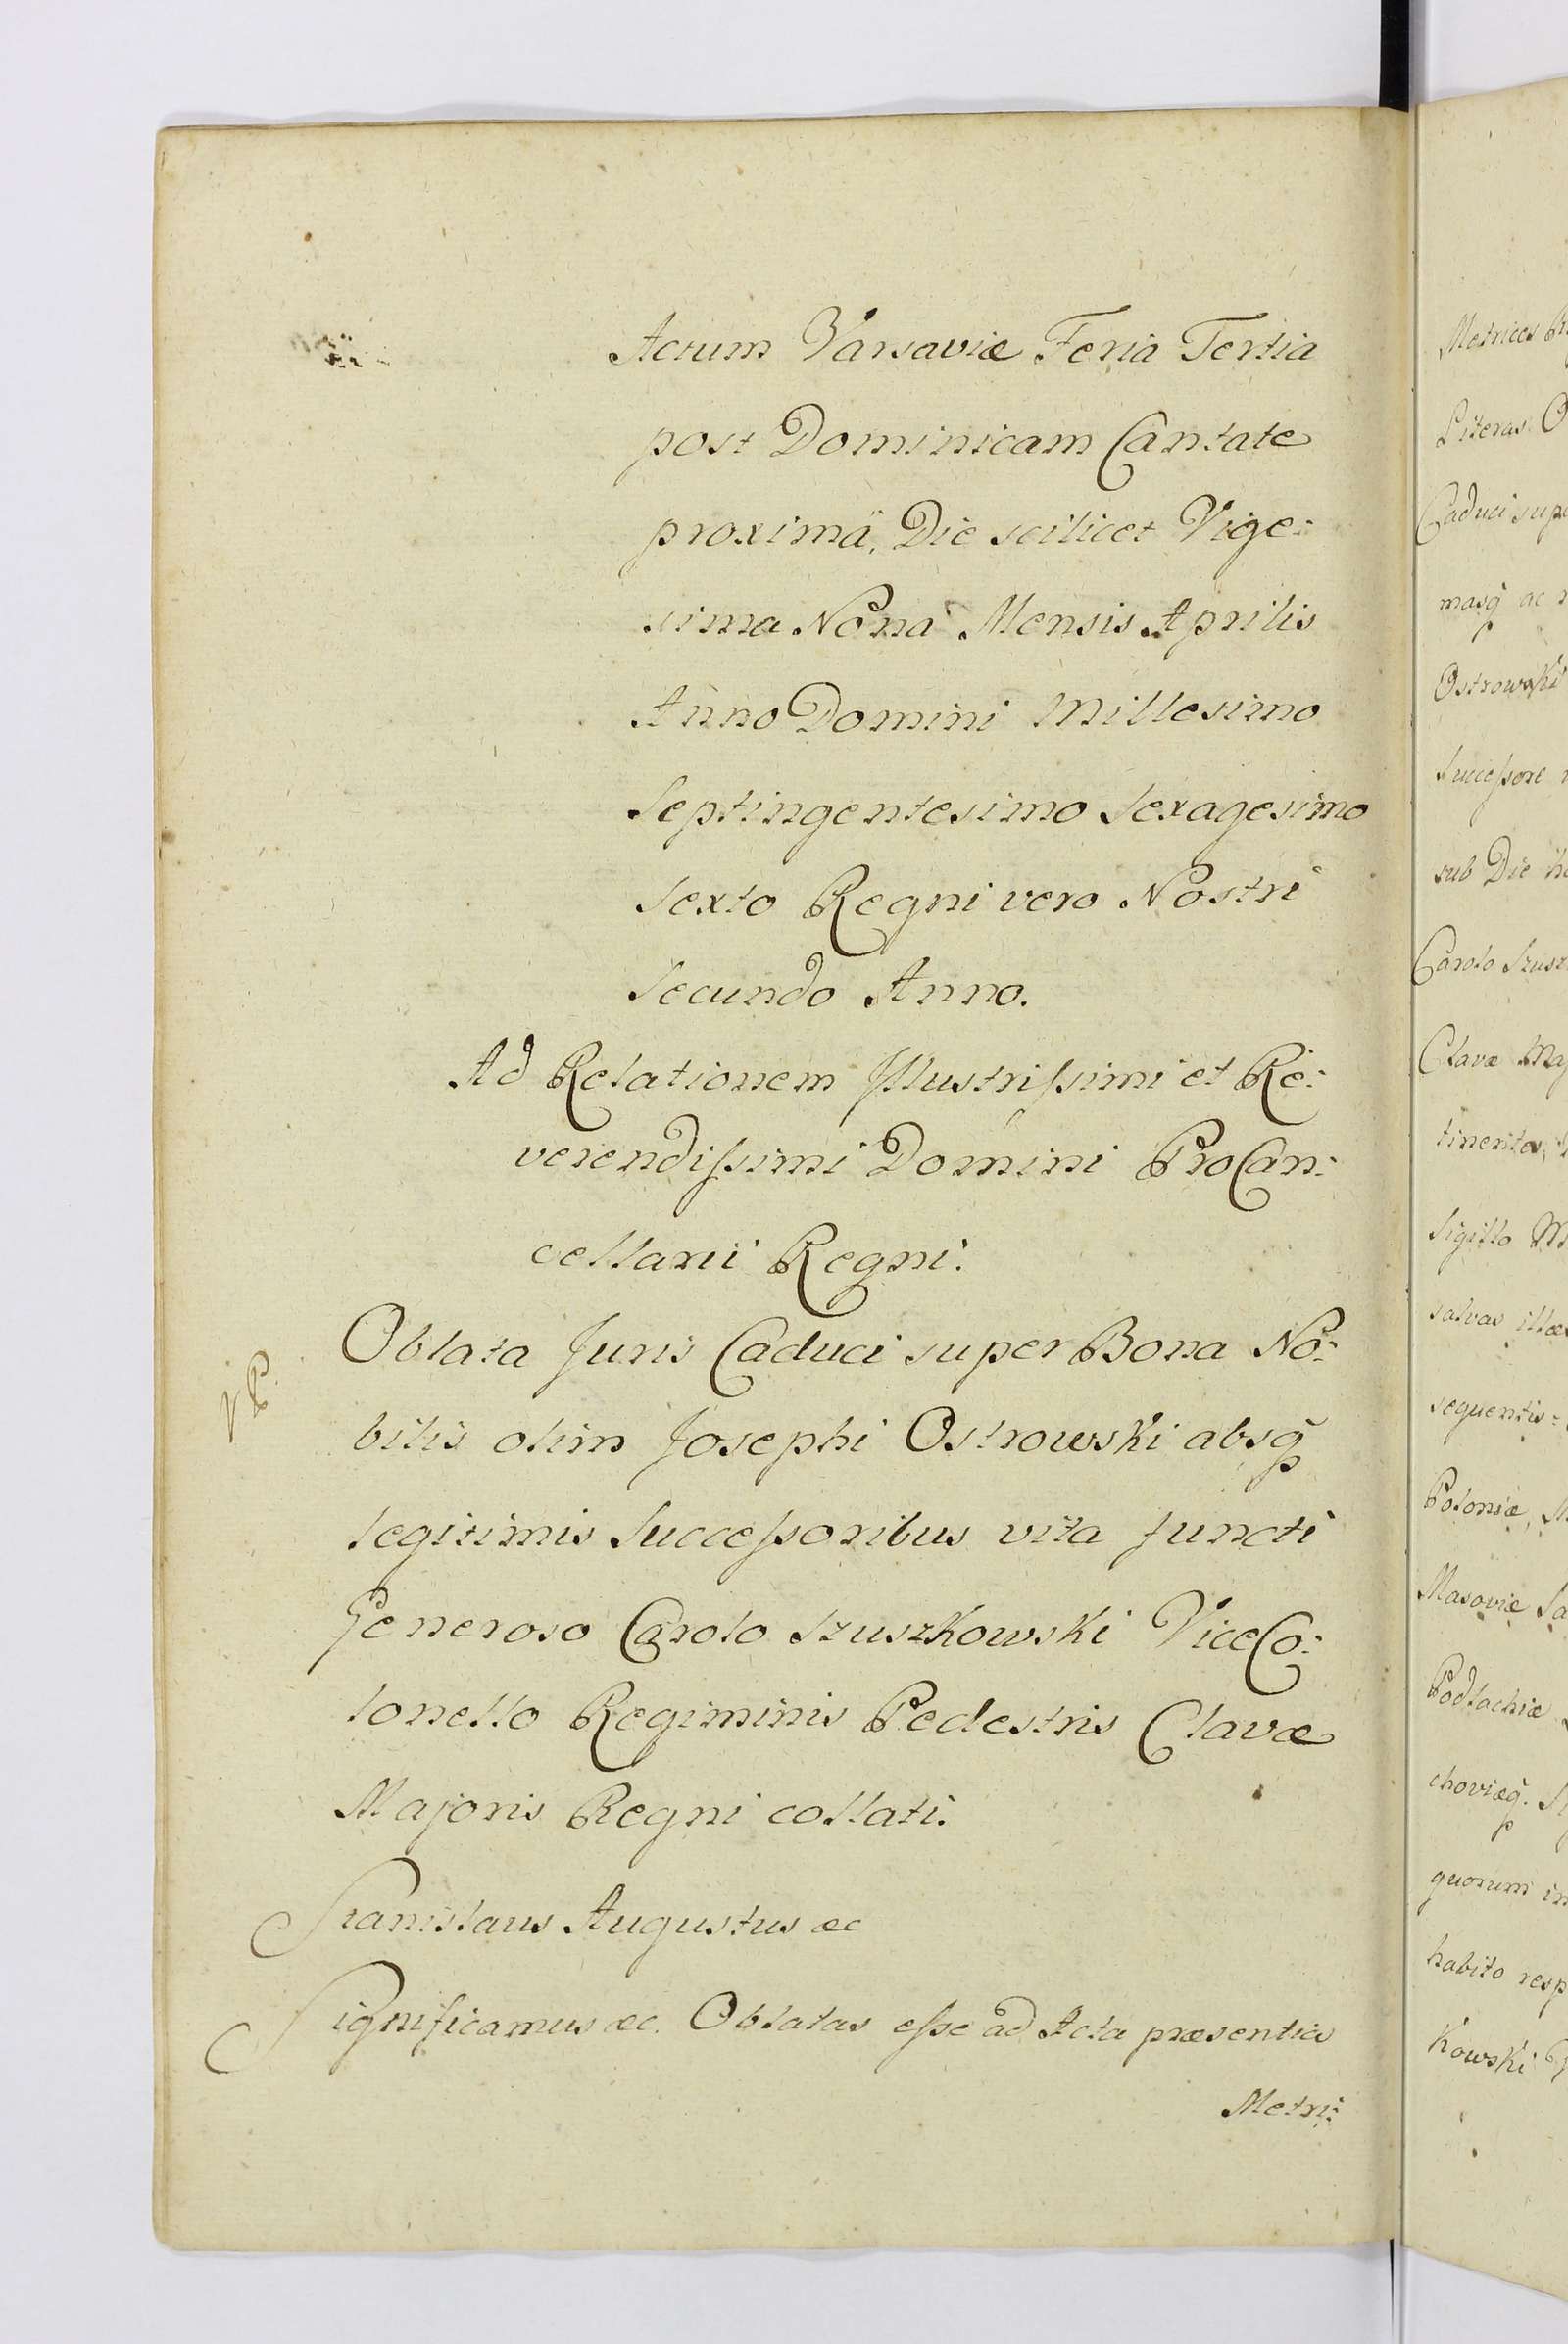 Actum Varsaviæ Feria Tertia
post Dominicam Cantate
proximä, Die scilicet Vige:
sima Nona Mensis Aprilis
Anno Domini Millesimo
Septingentesimo Sexagesimo
Sexto Regni vero Nostri
Secundo Anno.
Ad Relationem Illustrißimi et Re:
verendißimi Domini ProCan:
cellarii Regni.
Oblata Juris Caduci super Bona No:
bilis olim Josephi Ostrowski absq̃
legitimis Succeßoribus vita functi
Generoso Carolo Szuszkowski ViceCo:
lonello Regiminis Pedestris Clavæ
Majoris Regni collati.
Stanislaus Augustus &c
Significamus &c. Oblatas eße ad Acta præsentia
Metri:
Metrices
Literas
Caduci
masq̃ ac
Ostrowski
Succeßore
sub Die
Carolo
Clavæ
Sigillo
salvas
sequentis
Poloniæ,
Masoviæ
Podlachiæ
choviæq̃.
quorum
habito
kowski